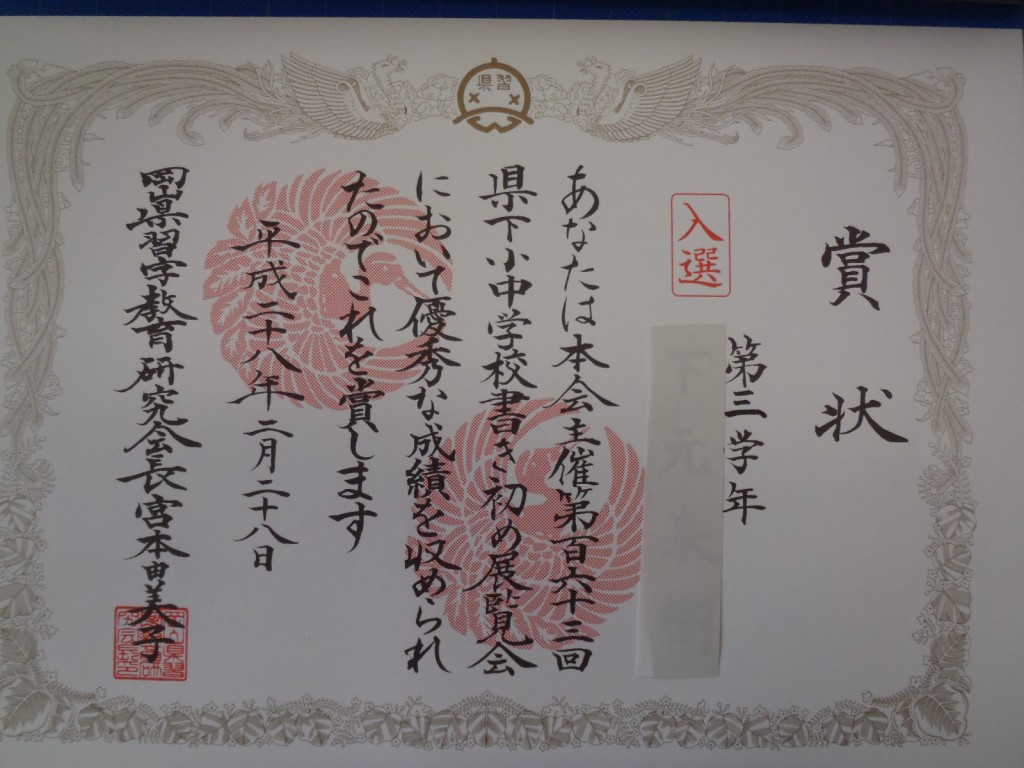 県習
賞状
第三学年
入選
あなたは本会主催第百六十三回
県下小中学校書き初め展覧会
において優秀な成績を収められ
たのでこれを賞します
平成二十八年二月二十八日
岡山県習字教育研究会長宮本由美子